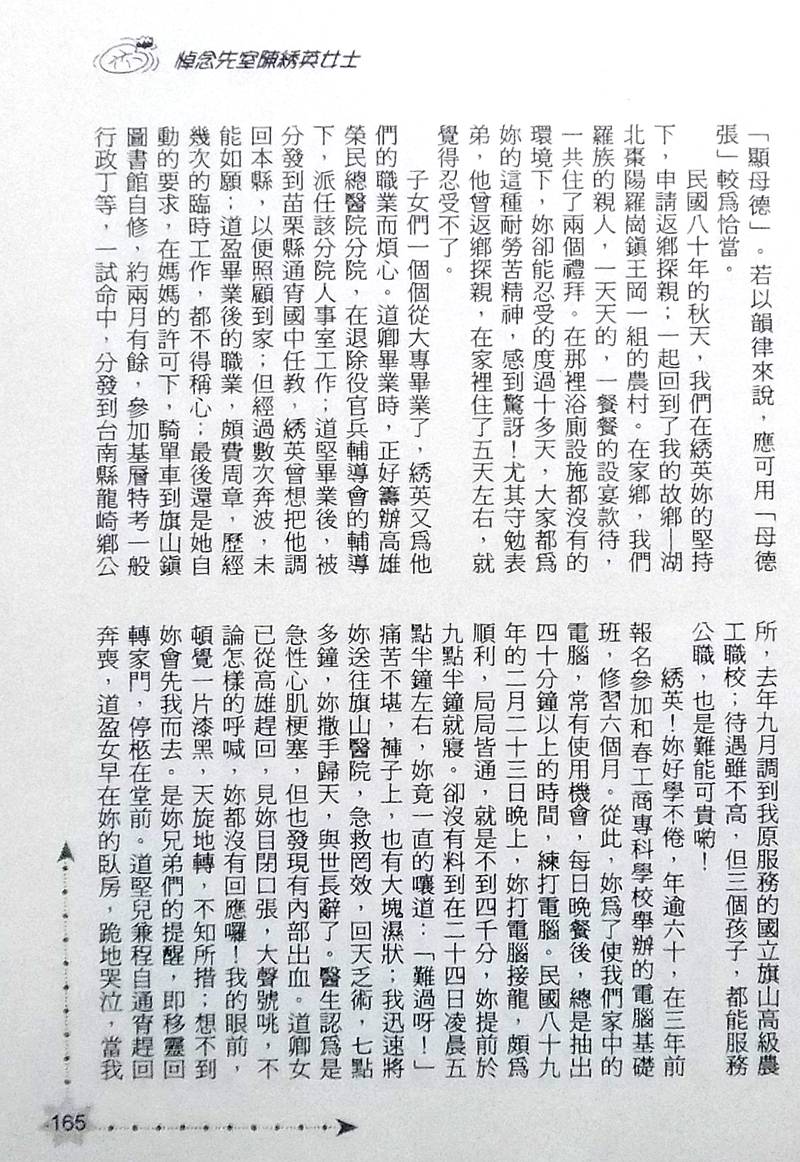 悼念先室陳綉英女士
「顯母德」。若以韻律來說，應可用「母德
張」較爲恰當。
民國八十年的秋天，我們在綉英妳的堅持
下，申請返鄉探親；一起回到了我的故鄉—湖
北棗陽羅崗鎮王岡一組的農村。在家鄉，我們
羅族的親人，一天天的，一餐餐的設宴款待，
一共住了兩個禮拜。在那裡浴廁設施都沒有的
環境下，妳卻能忍受的度過十多天，大家都爲
妳的這種耐勞苦精神，感到驚訝！尤其守勉表
弟，他曾返鄉探親，在家裡住了五天左右，就
覺得忍受不了。
子女們一個個從大專畢業了，綉英又爲他
們的職業而煩心。道卿畢業時，正好籌辦高雄
榮民總醫院分院，在退除役官兵輔導會的輔導
下，派任該分院人事室工作；道堅畢業後，被
分發到苗栗縣通宵國中任教，綉英曾想把他調
回本縣，以便照顧到家；但經過數次奔波，未
能如願；道盈畢業後的職業，頗費周章，歷經
幾次的臨時工作，都不得稱心；最後還是她自
動的要求，在媽媽的許可下，騎單車到旗山鎮
圖書館自修，約兩月有餘，參加基層特考一般
行政丁等，一試命中，分發到台南縣龍崎鄉公
所，去年九月調到我原服務的國立旗山高級農
工職校；待遇雖不高，但三個孩子，都能服務
公職，也是難能可貴喲！
綉英！妳好學不倦，年逾六十，在三年前
報名參加和春工商專科學校舉辦的電腦基礎
班，修習六個月。從此，妳爲了使我們家中的
電腦，常有使用機會，每日晚餐後，總是抽出
四十分鐘以上的時間，練打電腦。民國八十九
年的二月二十三日晚上，妳打電腦接龍，頗爲
順利，局局皆通，就是不到四千分，妳提前於
九點半鐘就寢。卻沒有料到在二十四日凌晨五
點半鐘左右，妳竟一直的嚷道：「難過呀！」
痛苦不堪，褲子上，也有大塊濕狀；我迅速將
妳送往旗山醫院，急救罔效，回天乏術，七點
多鐘，妳撒手歸天，與世長辭了。醫生認爲是
急性心肌梗塞，但也發現有內部出血。道卿女
已從高雄趕回，見妳目閉口張，大聲號咷，不
論怎樣的呼喊，妳都沒有回應囉！我的眼前，
頓覺一片漆黑，天旋地轉，不知所措；想不到
妳會先我而去。是妳兄弟們的提醒，即移靈回
轉家門，停柩在堂前。道堅兒兼程自通宵趕回
奔喪，道盈女早在妳的臥房，跪地哭泣，當我
165